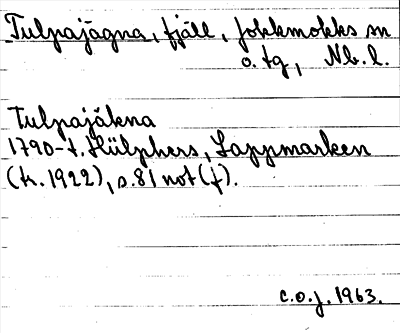 Tulpajägna, fjäll, Jokkmokks sn
o. tg, Nb. l.
Tulpajäkna
1790-t. Hülphers, Lappmarken
(tr. 1922), s. 81 not (f).
c.o.j. 1963.